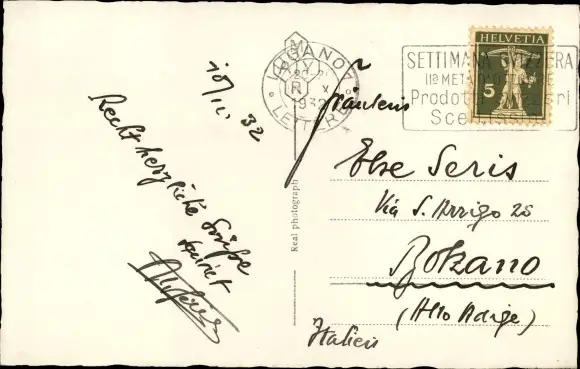 10/11. 32
Recht herzliche Grüße
sendet
LUGANO
1932
LETTERE
SETTIMANA SVIZZERA
HELVETIA
5
Real photograph
Fräulein
Else Seris
Via S. Arrigo 25
Bolzano
(Alto Adige)
Italien